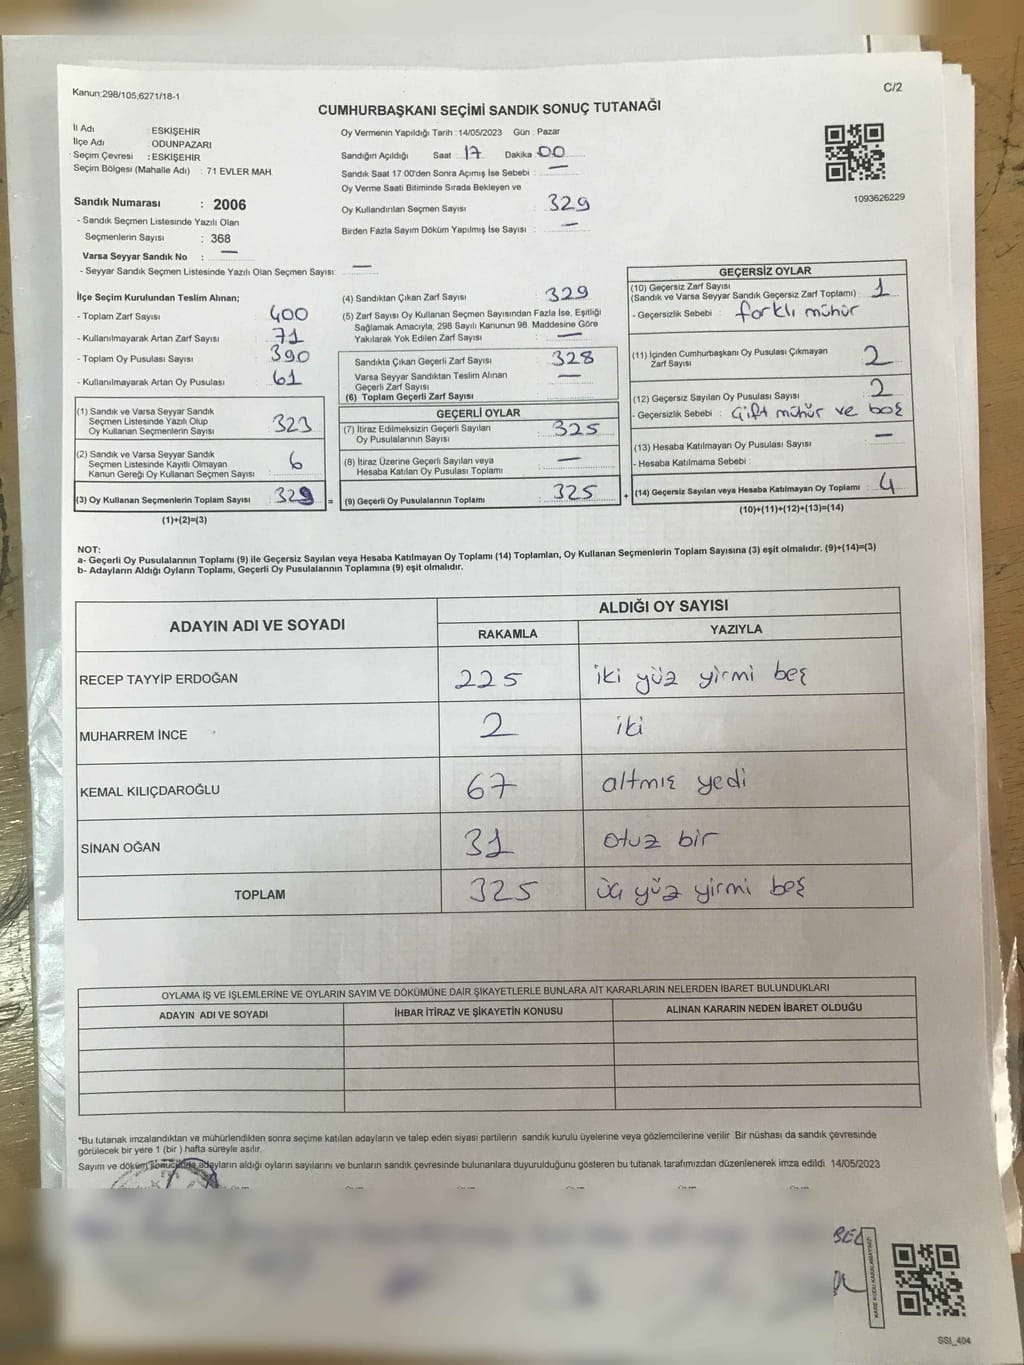 Kanun;298/105,6271/18-1
C/2
CUMHURBAŞKANI SEÇİMİ SANDIK SONUÇ TUTANAĞI
İl Adı : ESKİŞEHİR
İlçe Adı : ODUNPAZARI
Seçim Çevresi : ESKİŞEHİR
Seçim Bölgesi (Mahalle Adı) : 71 EVLER MAH.
Sandık Numarası : 2006
- Sandık Seçmen Listesinde Yazılı Olan
Seçmenlerin Sayısı : 368
Varsa Seyyar Sandık No : —
- Seyyar Sandık Seçmen Listesinde Yazılı Olan Seçmen Sayısı: —
Oy Vermenin Yapıldığı Tarih : 14/05/2023 Gün : Pazar
Sandığın Açıldığı Saat : 17 Dakika : 00
Sandık Saat 17:00'den Sonra Açımış İse Sebebi : —
Oy Verme Saati Bitiminde Sırada Bekleyen ve
Oy Kullandırılan Seçmen Sayısı : 329
Birden Fazla Sayım Döküm Yapılmış İse Sayısı : —
1093626229
İlçe Seçim Kurulundan Teslim Alınan;
- Toplam Zarf Sayısı : 400
- Kullanılmayarak Artan Zarf Sayısı : 71
- Toplam Oy Pusulası Sayısı : 390
- Kullanılmayarak Artan Oy Pusulası : 61
(1) Sandık ve Varsa Seyyar Sandık
Seçmen Listesinde Yazılı Olup
Oy Kullanan Seçmenlerin Sayısı : 323
(2) Sandık ve Varsa Seyyar Sandık
Seçmen Listesinde Kayıtlı Olmayan
Kanun Gereği Oy Kullanan Seçmen Sayısı : 6
(3) Oy Kullanan Seçmenlerin Toplam Sayısı : 329 =
(1)+(2)=(3)
(4) Sandıktan Çıkan Zarf Sayısı : 329
(5) Zarf Sayısı Oy Kullanan Seçmen Sayısından Fazla İse, Eşitliği
Sağlamak Amacıyla, 298 Sayılı Kanunun 98. Maddesine Göre
Yakılarak Yok Edilen Zarf Sayısı : —
Sandıkta Çıkan Geçerli Zarf Sayısı : 328
Varsa Seyyar Sandıktan Teslim Alınan
Geçerli Zarf Sayısı : —
(6) Toplam Geçerli Zarf Sayısı :
GEÇERLİ OYLAR
(7) İtiraz Edilmeksizin Geçerli Sayılan
Oy Pusulalarının Sayısı : 325
(8) İtiraz Üzerine Geçerli Sayılan veya
Hesaba Katılan Oy Pusulası Toplamı : —
(9) Geçerli Oy Pusulalarının Toplamı : 325 +
GEÇERSİZ OYLAR
(10) Geçersiz Zarf Sayısı
(Sandık ve Varsa Seyyar Sandık Geçersiz Zarf Toplamı) : 1
- Geçersizlik Sebebi : farklı mühür
(11) İçinden Cumhurbaşkanı Oy Pusulası Çıkmayan
Zarf Sayısı : 2
(12) Geçersiz Sayılan Oy Pusulası Sayısı : 2
- Geçersizlik Sebebi : Çift mühür ve boş
(13) Hesaba Katılmayan Oy Pusulası Sayısı : —
- Hesaba Katılmama Sebebi :
(14) Geçersiz Sayılan veya Hesaba Katılmayan Oy Toplamı : 4
(10)+(11)+(12)+(13)=(14)
NOT:
a- Geçerli Oy Pusulalarının Toplamı (9) ile Geçersiz Sayılan veya Hesaba Katılmayan Oy Toplamı (14) Toplamları, Oy Kullanan Seçmenlerin Toplam Sayısına (3) eşit olmalıdır. (9)+(14)=(3)
b- Adayların Aldığı Oyların Toplamı, Geçerli Oy Pusulalarının Toplamına (9) eşit olmalıdır.
ADAYIN ADI VE SOYADI
ALDIĞI OY SAYISI
RAKAMLA YAZIYLA
RECEP TAYYİP ERDOĞAN 225 iki yüz yirmi beş
MUHARREM İNCE 2 iki
KEMAL KILIÇDAROĞLU 67 altmış yedi
SİNAN OĞAN 31 otuz bir
TOPLAM 325 üç yüz yirmi beş
OYLAMA İŞ VE İŞLEMLERİNE VE OYLARIN SAYIM VE DÖKÜMÜNE DAİR ŞİKAYETLERLE BUNLARA AİT KARARLARIN NELERDEN İBARET BULUNDUKLARI
ADAYIN ADI VE SOYADI İHBAR İTİRAZ VE ŞİKAYETİN KONUSU ALINAN KARARIN NEDEN İBARET OLDUĞU
*Bu tutanak imzalandıktan ve mühürlendikten sonra seçime katılan adayların ve talep eden siyasi partilerin sandık kurulu üyelerine veya gözlemcilerine verilir. Bir nüshası da sandık çevresinde
görülecek bir yere 1 (bir ) hafta süreyle asılır.
Sayım ve döküm sonucunda adayların aldığı oyların sayılarını ve bunların sandık çevresinde bulunanlara duyurulduğunu gösteren bu tutanak tarafımızdan düzenlenerek imza edildi. 14/05/2023
BEL
KARE KODU KARALAMAYINIZ!
SSI_404